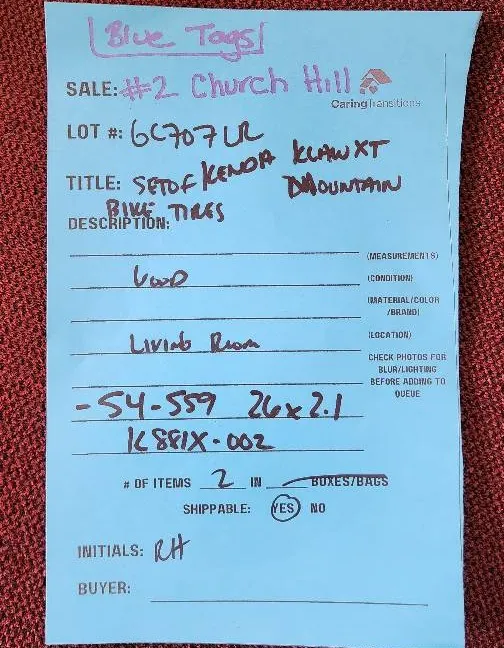 Blue Tags
SALE: #2 Church Hill
CaringTransitions
LOT #: 6C707LR
TITLE: SET OF KENDA KLAW XT
MOUNTAIN
BIKE TIRES
DESCRIPTION:
(MEASUREMENTS)
GOOD (CONDITION)
(MATERIAL/COLOR
/BRAND)
LIVING ROOM (LOCATION)
CHECK PHOTOS FOR
BLUR/LIGHTING
BEFORE ADDING TO
QUEUE
-54-559 26x2.1
K881X-002
# OF ITEMS 2 IN BOXES/BAGS
SHIPPABLE: YES NO
INITIALS: RH
BUYER: